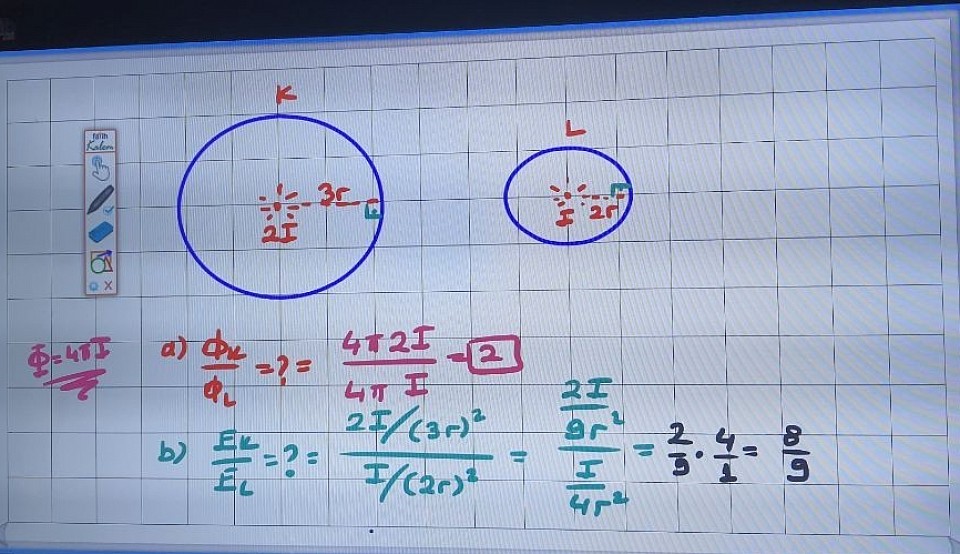 K
L
FATİH
Kalem
3r
2I
I
2r
Φ=4πI
a) ΦK/ΦL =?= 4π2I/4π I = 2
b) EK/EL =?= 2I/(3r)² / I/(2r)² = 2I/9r² / I/4r² = 2/9 · 4/1 = 8/9